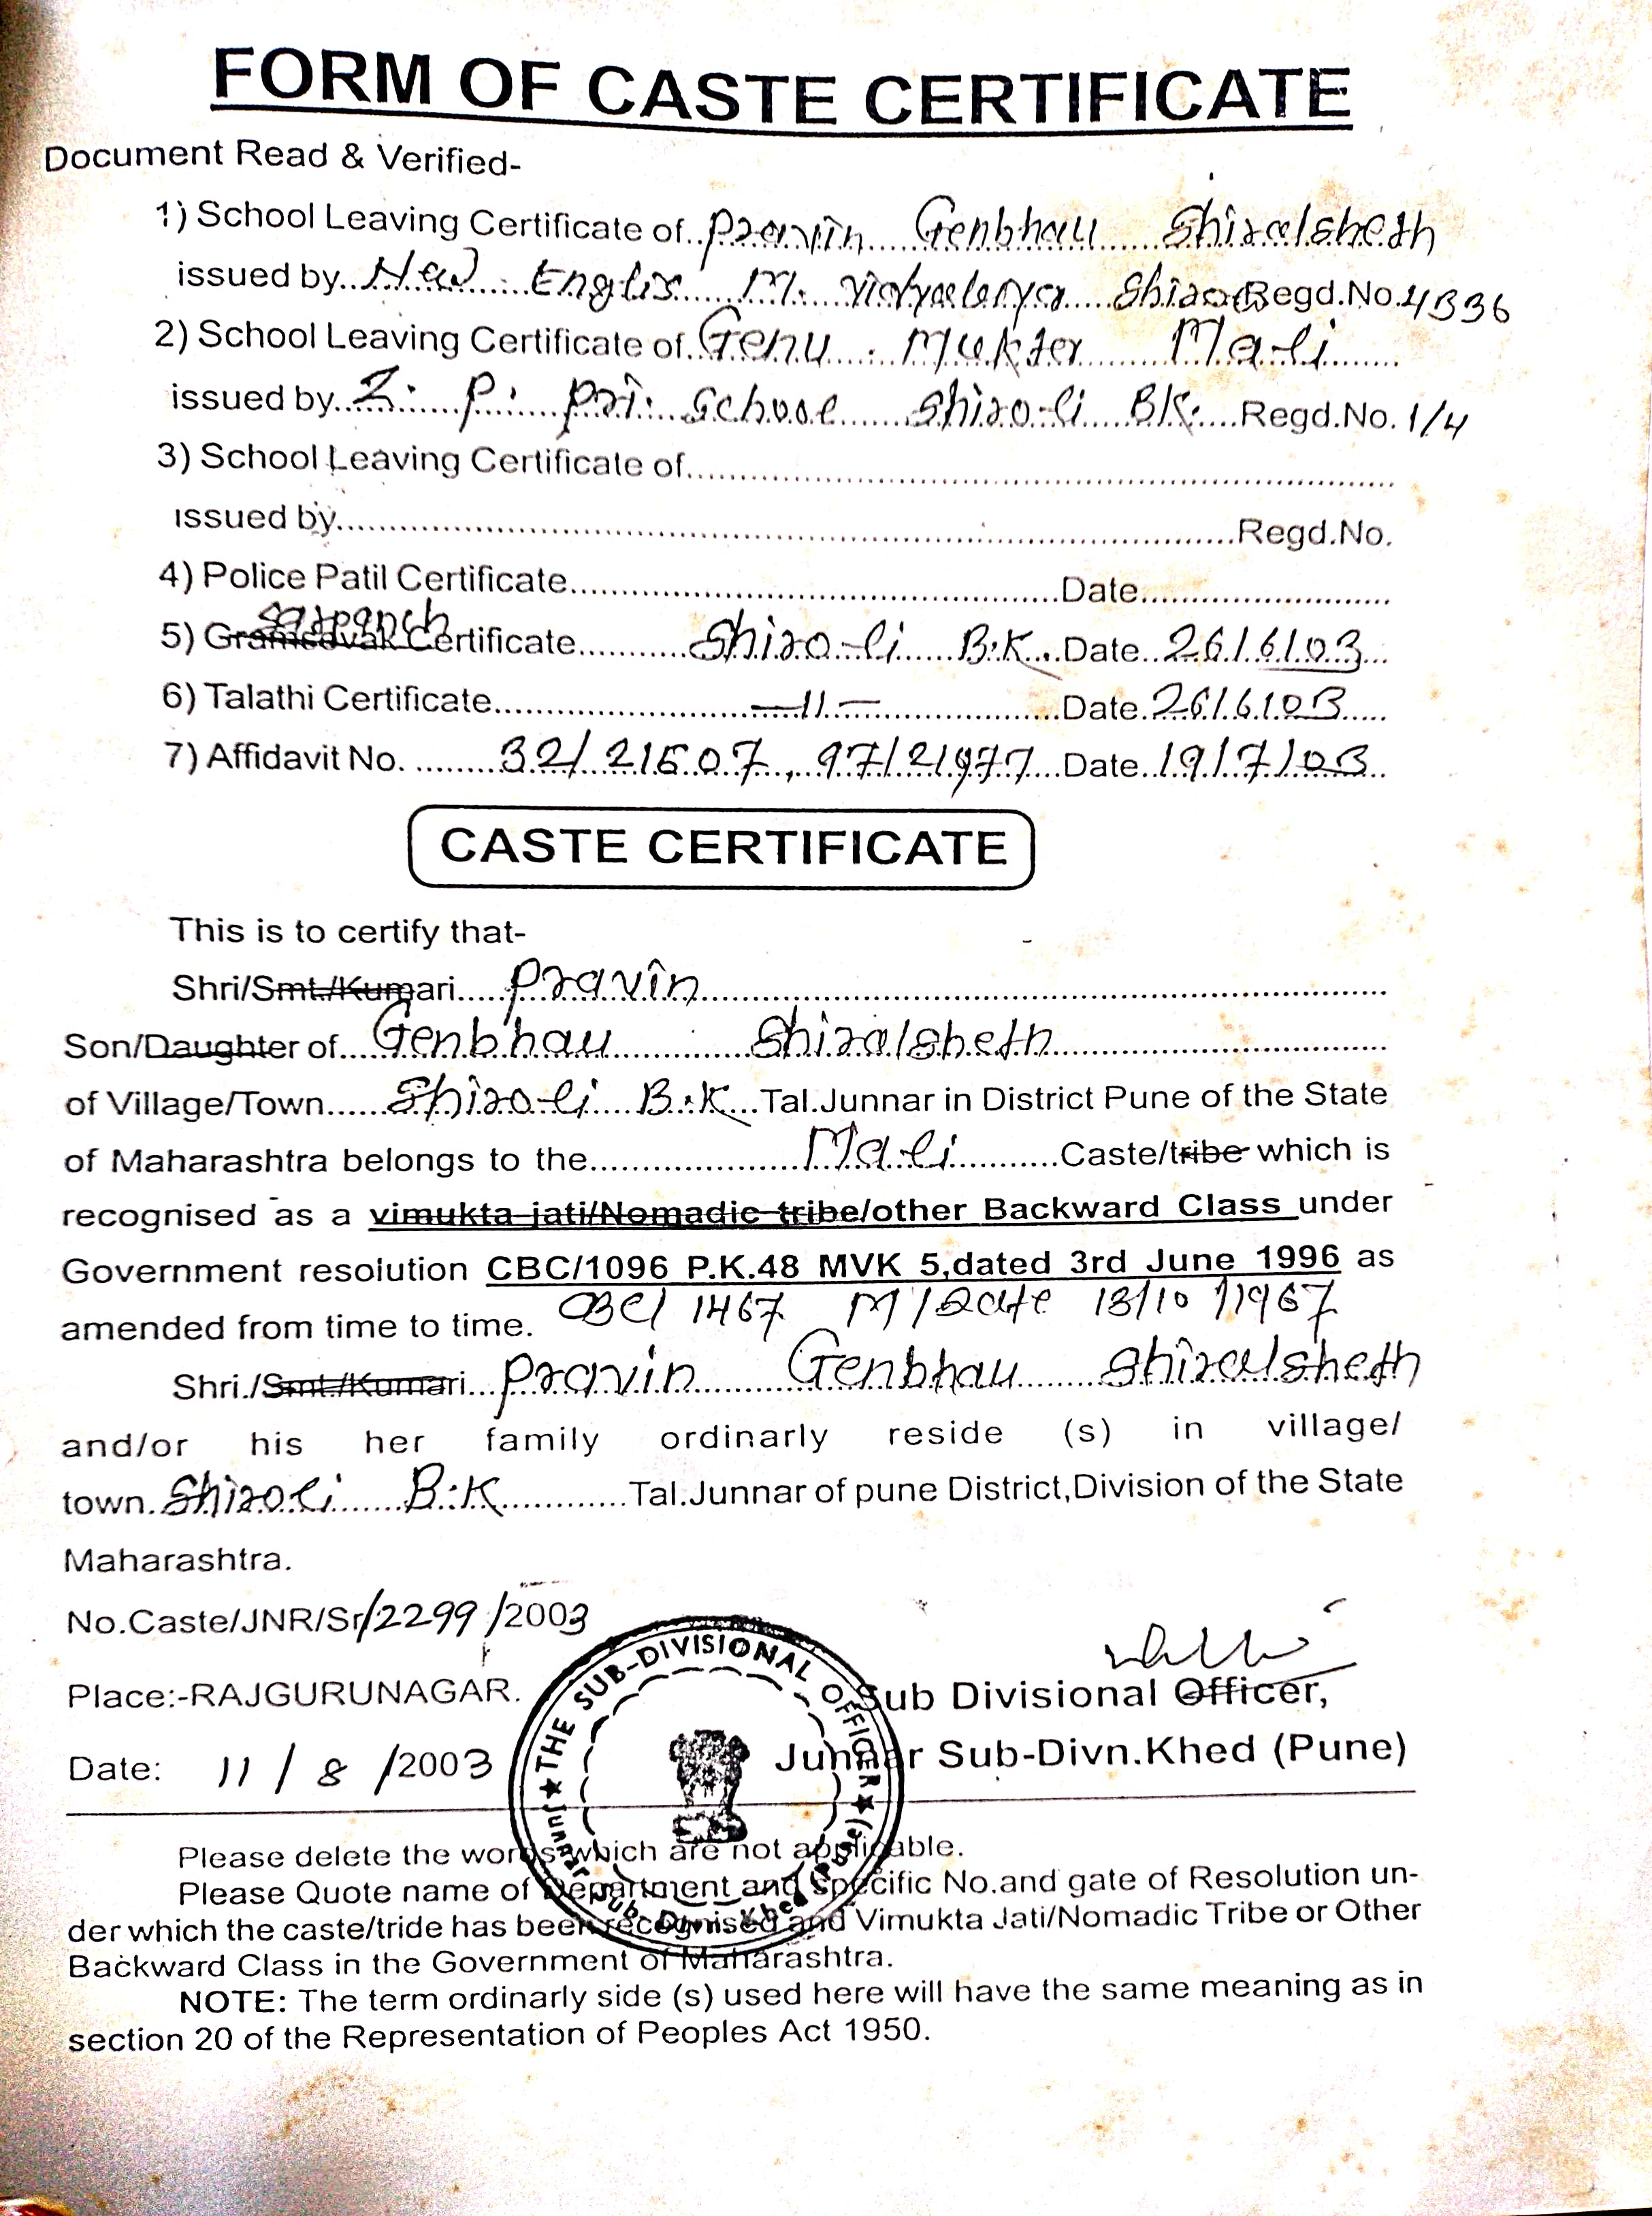 FORM OF CASTE CERTIFICATE
Document Read & Verified-
1) School Leaving Certificate of..Pravin Genbhau Shiralsheth
issued by..New Englis M. Shiro Regd.No.4336
2) School Leaving Certificate of..Genu Mali
issued by..Z. P. Pri. School Shiroli BK. Regd.No. 1/4
3) School Leaving Certificate of
issued by Regd.No.
4) Police Patil Certificate Date
Sarpanch
5) Gramsevak Certificate Shiroli B.K. Date 26/6/03
6) Talathi Certificate —11— Date 26/6/03
7) Affidavit No. 32/21507, 97/21977 Date 19/7/03
CASTE CERTIFICATE
This is to certify that-
Shri/Smt./Kumari Pravin
Son/Daughter of Genbhau Shiralsheth
of Village/Town Shiroli B.K Tal.Junnar in District Pune of the State
of Maharashtra belongs to the Mali Caste/tribe which is
recognised as a vimukta jati/Nomadic tribe/other Backward Class under
Government resolution CBC/1096 P.K.48 MVK 5,dated 3rd June 1996 as
amended from time to time. CBC/ 1467 M/Date 13/10/1967
Shri./Smt./Kumari Pravin Genbhau Shiralsheth
and/or his her family ordinarly reside (s) in village/
town Shiroli B.K Tal.Junnar of pune District,Division of the State
Maharashtra.
No.Caste/JNR/Sr/2299/2003
Place:-RAJGURUNAGAR.
Sub Divisional Officer,
Junnar Sub-Divn.Khed (Pune)
Date: 11/8/2003
★ THE SUB-DIVISIONAL OFFICER ★
Junnar Sub. Divn. Khed (Pune)
Please delete the words which are not applicable.
Please Quote name of Department and Specific No.and gate of Resolution un-
der which the caste/tride has been recognised and Vimukta Jati/Nomadic Tribe or Other
Backward Class in the Government of Maharashtra.
NOTE: The term ordinarly side (s) used here will have the same meaning as in
section 20 of the Representation of Peoples Act 1950.